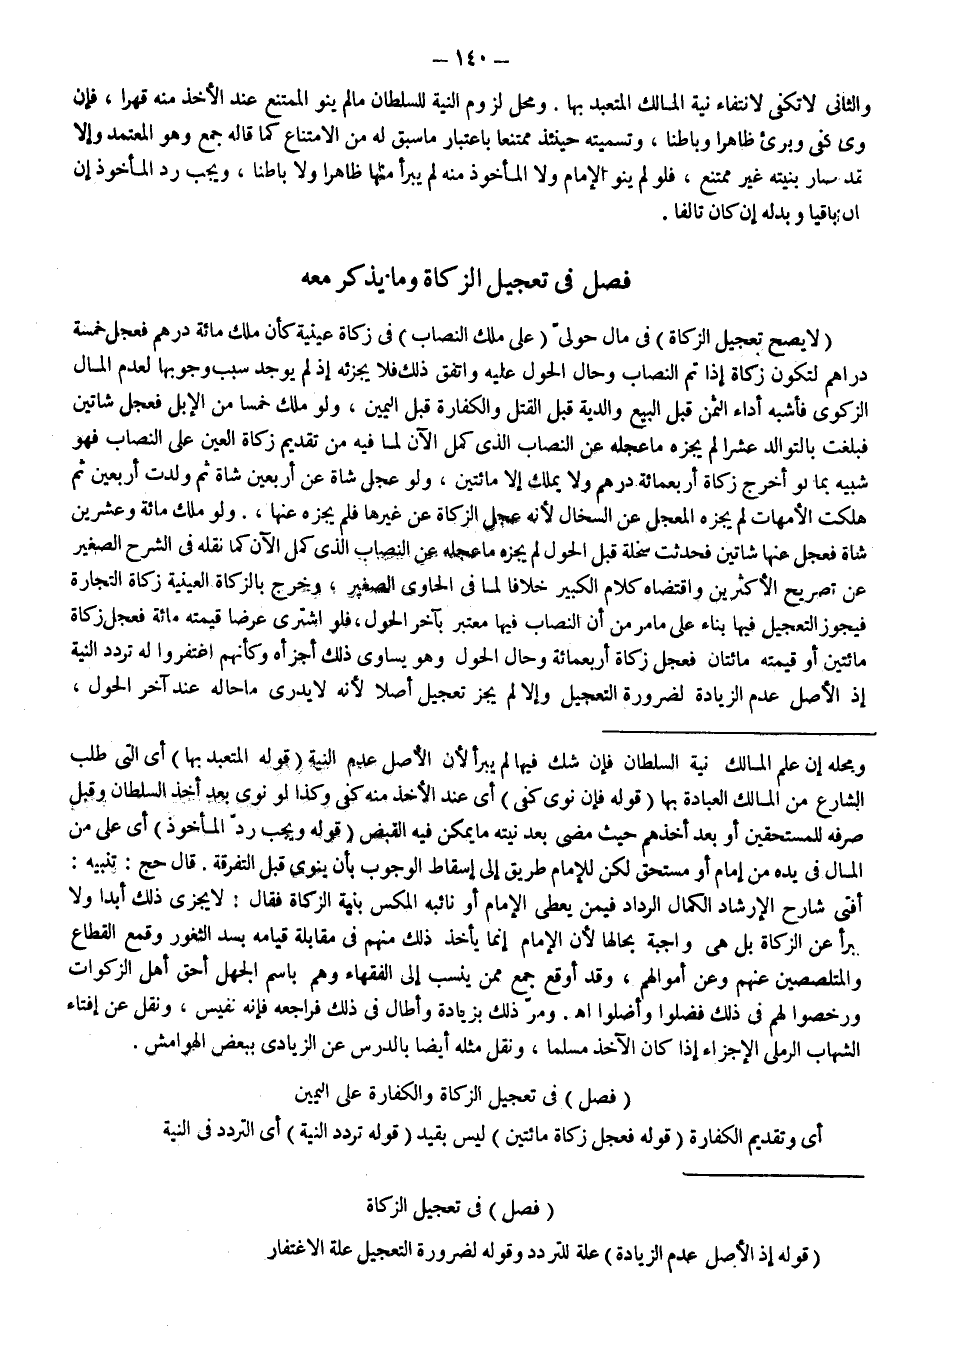 — ١٤٠ —
والثانى لاتكفى لانتفاء نية المالك المتعبد بها . ومحل لزوم النية للسلطان مالم ينو الممتنع عند الأخذ منه قهرا ، فإن
وى كفى وبرئ ظاهرا وباطنا ، وتسميته حينئذ ممتنعا باعتبار ماسبق له من الامتناع كما قاله جمع وهو المعتمد وإلا
قد صار بنيته غير ممتنع ، فلو لم ينو الإمام ولا المأخوذ منه لم يبرأ مثلها ظاهرا ولا باطنا ، ويجب رد المأخوذ إن
ان باقيا وبدله إن كان تالفا .
فصل فى تعجيل الزكاة وما يذكر معه
( لايصح تعجيل الزكاة ) فى مال حولىّ ( على ملك النصاب ) فى زكاة عينية كأن ملك مائة درهم فعجل خمسة
دراهم لتكون زكاة إذا تم النصاب وحال الحول عليه واتفق ذلك فلا يجزئه إذ لم يوجد سبب وجوبها لعدم المال
الزكوى فأشبه أداء الثمن قبل البيع والدية قبل القتل والكفارة قبل اليمين ، ولو ملك خمسا من الإبل فعجل شاتين
فبلغت بالتوالد عشرا لم يجزه ماعجله عن النصاب الذى كمل الآن لما فيه من تقديم زكاة العين على النصاب فهو
شبيه بما لو أخرج زكاة أربعمائة درهم ولا يملك إلا مائتين ، ولو عجل شاة عن أربعين شاة ثم ولدت أربعين ثم
هلكت الأمهات لم يجزه المعجل عن السخال لأنه عجل الزكاة عن غيرها فلم يجزه عنها ، . ولو ملك مائة وعشرين
شاة فعجل عنها شاتين فحدثت سخلة قبل الحول لم يجزه ماعجله عن النصاب الذى كمل الآن كما نقله فى الشرح الصغير
عن تصريح الأكثرين واقتضاه كلام الكبير خلافا لما فى الحاوى الصغير ، وخرج بالزكاة العينية زكاة التجارة
فيجوز التعجيل فيها بناء على مامر من أن النصاب فيها معتبر بآخر الحول ، فلو اشترى عرضا قيمته مائة فعجل زكاة
مائتين أو قيمته مائتان فعجل زكاة أربعمائة وحال الحول وهو يساوى ذلك أجزأه وكأنهم اغتفروا له تردد النية
إذ الأصل عدم الزيادة لضرورة التعجيل وإلا لم يجز تعجيل أصلا لأنه لايدرى ماحاله عند آخر الحول ،
ومحله إن علم المالك نية السلطان فإن شك فيها لم يبرأ لأن الأصل عدم النية ( قوله المتعبد بها ) أى التى طلب
الشارع من المالك العبادة بها ( قوله فإن نوى كفى ) أى عند الأخذ منه كفى وكذا لو نوى بعد أخذ السلطان وقبل
صرفه للمستحقين أو بعد أخذهم حيث مضى بعد نيته مايمكن فيه القبض ( قوله ويجب ردّ المأخوذ ) أى على من
المال فى يده من إمام أو مستحق لكن للإمام طريق إلى إسقاط الوجوب بأن ينوى قبل التفرقة . قال حج : تنبيه :
أفتى شارح الإرشاد الكمال الرداد فيمن يعطى الإمام أو نائبه المكس بنية الزكاة فقال : لايجزى ذلك أبدا ولا
يبرأ عن الزكاة بل هى واجبة بحالها لأن الإمام إنما يأخذ ذلك منهم فى مقابلة قيامه بسد الثغور وقمع القطاع
والمتلصصين عنهم وعن أموالهم ، وقد أوقع جمع ممن ينسب إلى الفقهاء وهم باسم الجهل أحق أهل الزكوات
ورخصوا لهم فى ذلك فضلوا وأضلوا اهـ . ومرّ ذلك بزيادة وأطال فى ذلك فراجعه فإنه نفيس ، ونقل عن إفتاء
الشهاب الرملى الإجزاء إذا كان الآخذ مسلما ، ونقل مثله أيضا بالدرس عن الزيادى ببعض الهوامش .
( فصل ) فى تعجيل الزكاة والكفارة على اليمين
أى وتقديم الكفارة ( قوله فعجل زكاة مائتين ) ليس بقيد ( قوله تردد النية ) أى التردد فى النية
( فصل ) فى تعجيل الزكاة
( قوله إذ الأصل عدم الزيادة ) علة للتردد وقوله لضرورة التعجيل علة الاغتفار